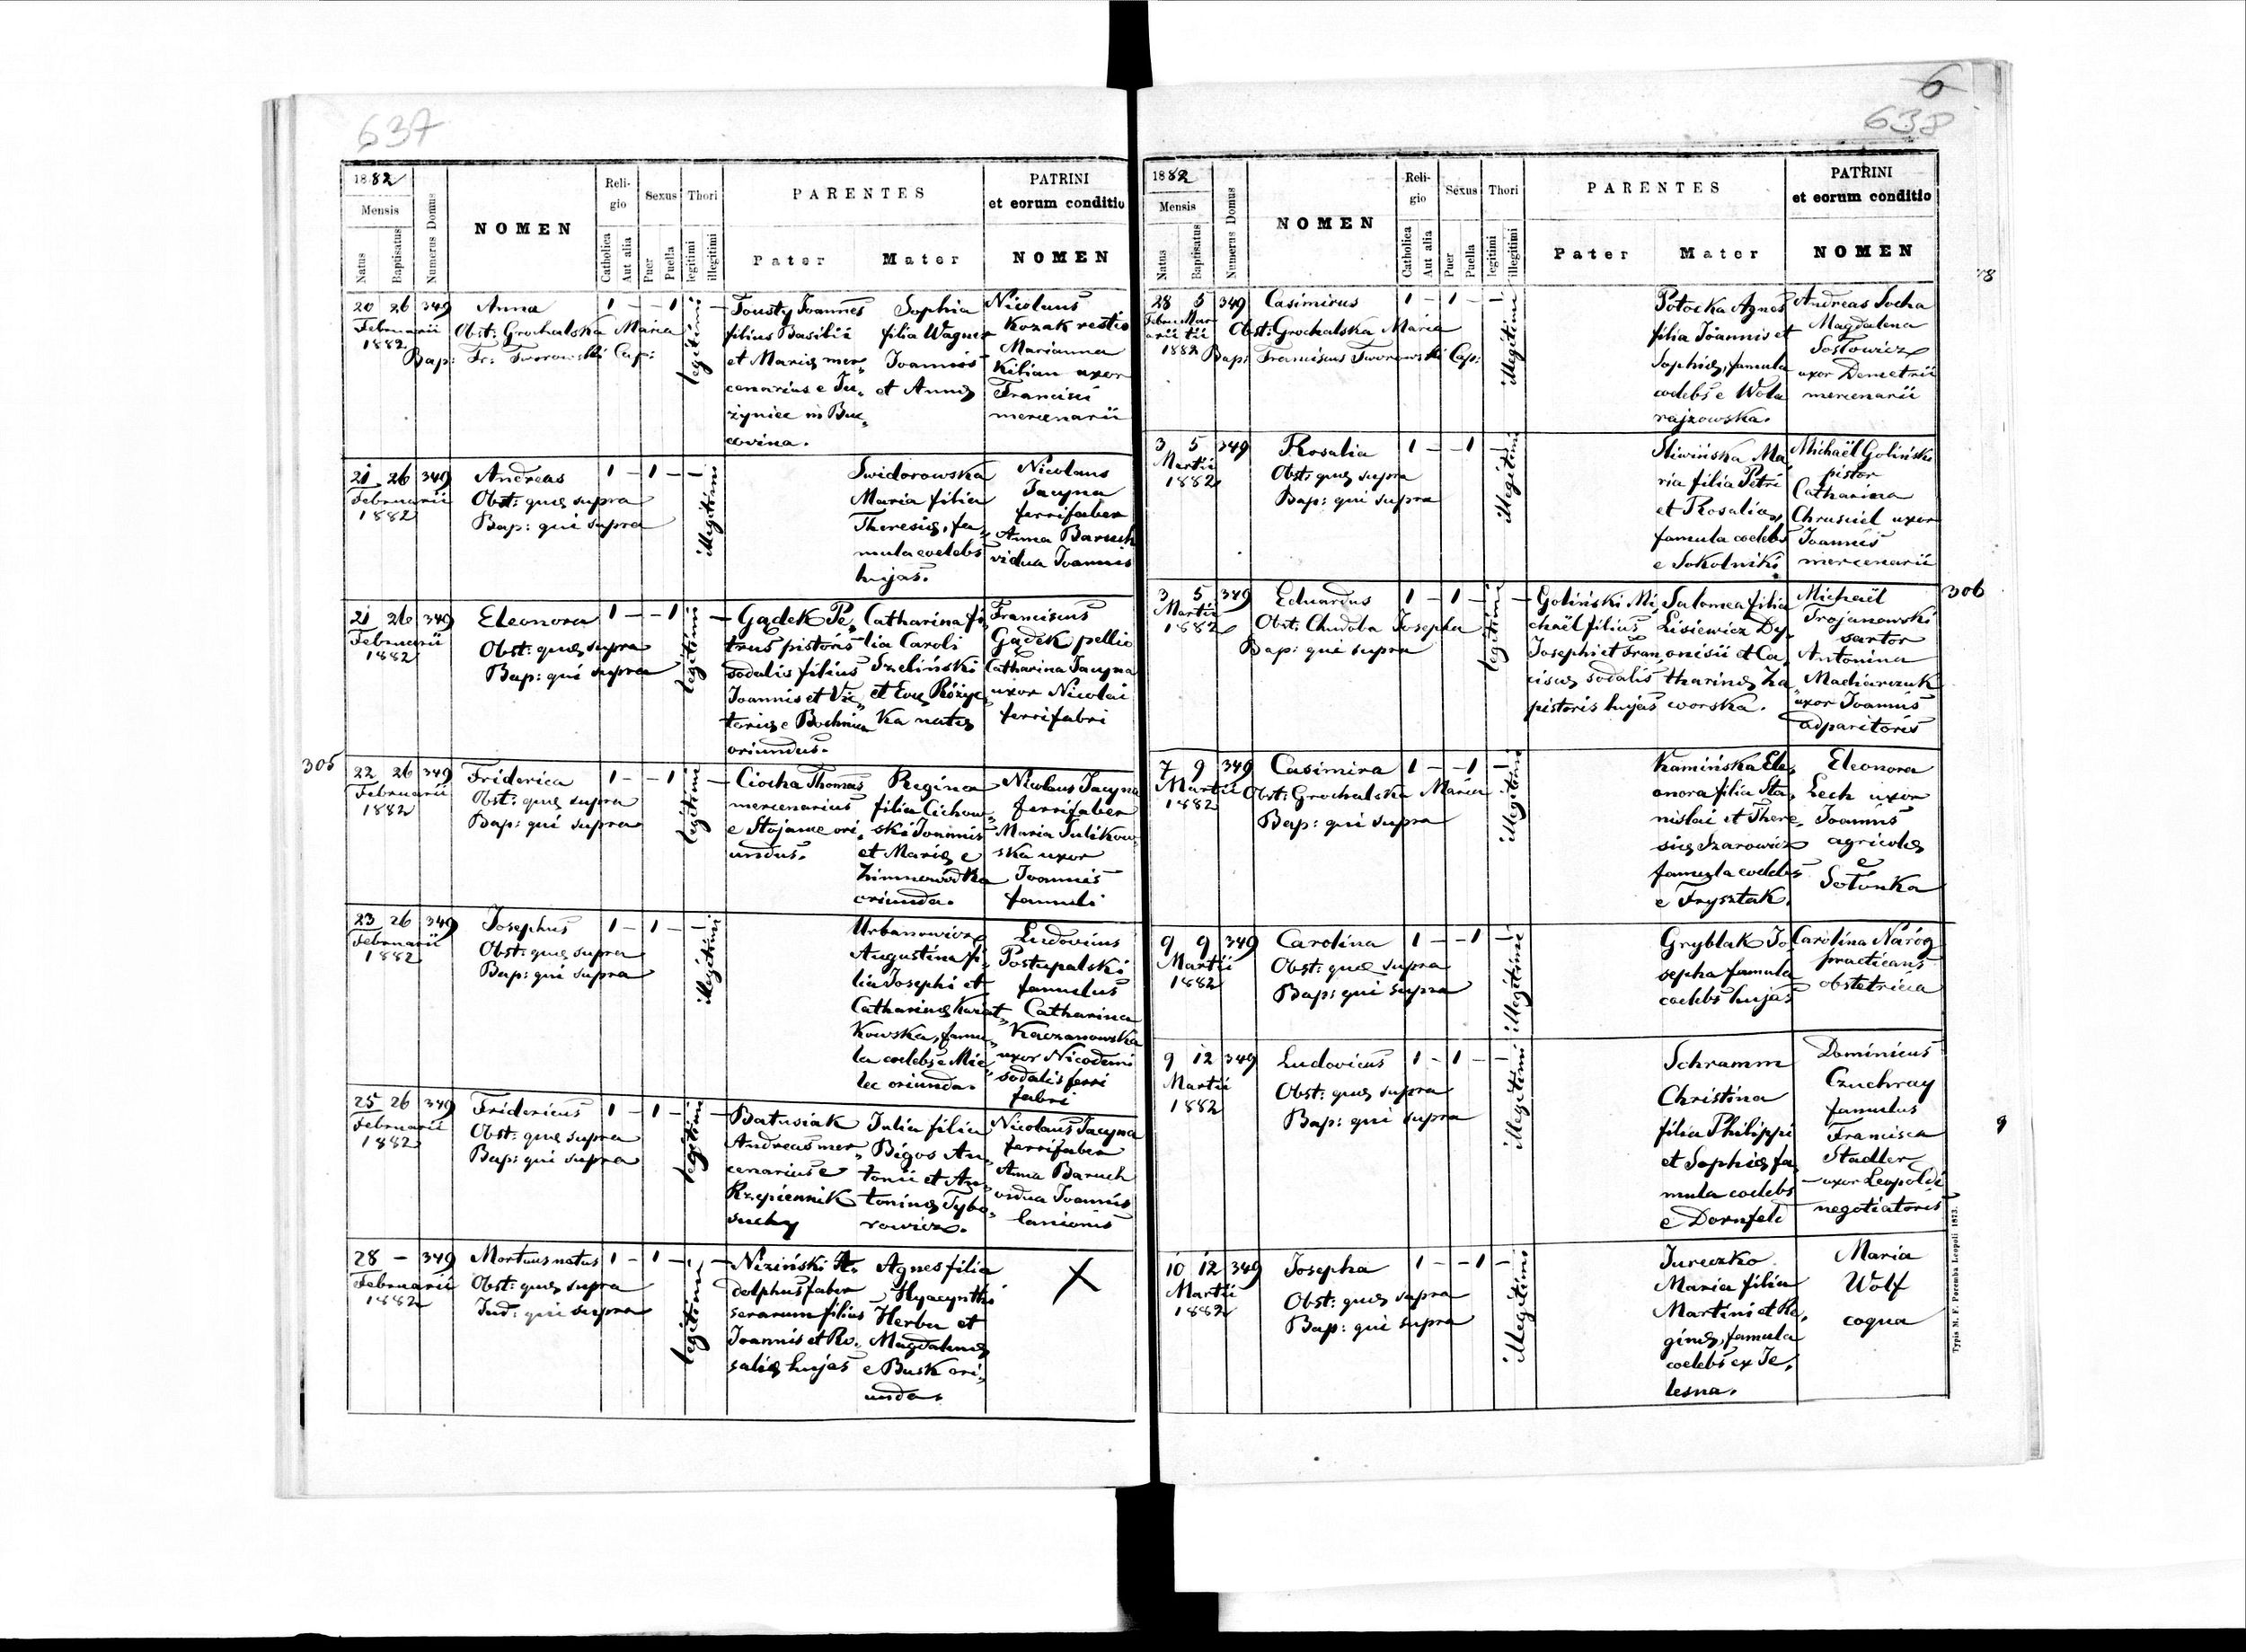 637
1882
Mensis
Natus
Baptisatus
Numerus Domus
NOMEN
Religio
Catholica
Aut alia
Sexus
Puer
Puella
Thori
legitimi
illegitimi
PARENTES
Pater
Mater
PATRINI
et eorum conditio
NOMEN
20 26 349
Februarii
1882
Anna
Obst: Grochalska Maria
Bap: Fr. Tworowski Cap:
1 – – 1
legitimi
Tousty Joannes
filius Basilii
et Mariæ mer„
cenarius e Ju„
żyniec in Buc„
covina.
Sophia
filia Wagner
Joannis
et Annæ
Nicolaus
Kozak restio
Marianna
Kilian uxor
Francisci
mercenarii
21 26 349
Februarii
1882
Andreas
Obst: quæ supra
Bap: qui supra
1 – 1 –
illegitimi
Swidorowska
Maria filia
Theresiæ, fa„
mula coelebs
hujas.
Nicolaus
Jacyna
ferrifaber
Anna Baruch
vidua Joannis
21 26 349
Februarii
1882
Eleonora
Obst: quæ supra
Bap: qui supra
1 – – 1
legitimi
Gądek Pe„
trus pistoris
sodalis filius
Joannis et Vic„
toriæ e Bochnia
oriundus.
Catharina fi„
lia Caroli
Szeliński
et Evæ Różyc„
ka natæ
Franciscus
Gądek pellio
Catharina Jacyna
uxor Nicolai
ferrifabri
305
22 26 349
Februarii
1882
Friderica
Obst: quæ supra
Bap: qui supra
1 – – 1
legitimi
Ciocha Thomas
mercenarius
e Stojance ori„
undus.
Regina
filia Cichow„
ski Joannis
et Mariæ e
Zimnowódka
oriunda.
Nicolaus Jacyna
ferrifaber
Maria Julikow„
ska uxor
Joannis
famuli
23 26 349
Februarii
1882
Josephus
Obst: quæ supra
Bap: qui supra
1 – 1 –
illegitimi
Urbanowicz
Augustina fi„
lia Josephi et
Catharinæ Kwiat„
kowska, famu„
la coelebs e Mie„
lec oriunda.
Ludovicus
Postupalski
famulus
Catharina
Kaczanowska
uxor Nicodemi
sodalis ferri
fabri
25 26 349
Februarii
1882
Fridericus
Obst: quæ supra
Bap: qui supra
1 – 1 –
legitimi
Batusiak
Andreas mer„
cenarius e
Rzepiennik
suchy
Julia filia
Bigos An„
tonii et An„
toninæ Tybo„
rowicz.
Nicolaus Jacyna
ferrifaber
Anna Baruch
vidua Joannis
lanionis
28 – 349
Februarii
1882
Mortuus natus
Obst: quæ supra
Ind: qui supra
1 – 1 –
legitimi
Niziński A„
dolphus faber
serarum filius
Joannis et Ro„
saliæ hujas
Agnes filia
Hyacynthi
Herba et
Magdalenæ
e Busk ori„
unda.
X
6
638
1882
Mensis
Natus
Baptisatus
Numerus Domus
NOMEN
Religio
Catholica
Aut alia
Sexus
Puer
Puella
Thori
legitimi
illegitimi
PARENTES
Pater
Mater
PATRINI
et eorum conditio
NOMEN
28 5 349
Febru Mar
arii tii
1882
Casimirus
Obst: Grochalska Maria
Bap: Franciscus Tworowski Cap:
1 – 1 –
illegitimi
Potocka Agnes
filia Joannis et
Sophiæ, famula
coelebs e Wola
rajzowska.
Andreas Socha
Magdalena
Sostowicz
uxor Demetrii
mercenarii
3 5 349
Martii
1882
Rosalia
Obst: quæ supra
Bap: qui supra
1 – – 1
illegitimi
Sliwińska Ma
ria filia Petri
et Rosaliæ,
famula coelebs
e Sokolniki.
Michaël Goliński
pistor
Catharina
Chruściel uxor
Joannis
mercenarii
306
3 5 349
Martii
1882
Eduardus
Obst: Chudoba Josepha
Bap: qui supra
1 – 1 –
legitimi
Goliński Mi„
chaël filius
Josephi et Fran„
ciscæ sodalis
pistoris hujas
Salomea filia
Lisiewicz Dy„
onisii et Ca„
tharinæ Za„
worska.
Michaël
Trojanowski
sartor
Antonina
Machiarczuk
uxor Joannis
adparitoris
7 9 349
Martii
1882
Casimira
Obst: Grochalska Maria
Bap: qui supra
1 – – 1
illegitimi
Kamińska Ele„
onora filia Sta„
nislai et There„
siæ Szarowicz
famula coelebs
e Frysztak.
Eleonora
Lech uxor
Joannis
agricolæ
e
Sołonka
9 9 349
Martii
1882
Carolina
Obst: quæ supra
Bap: qui supra
1 – – 1
illegitimi
Gryblak Jo
sepha famula
coelebs hujas
Carolina Naróg
practicans
obstetricia
9 12 349
Martii
1882
Ludovicus
Obst: quæ supra
Bap: qui supra
1 – 1 –
illegitimi
Schramm
Christina
filia Philippi
et Sophiæ, fa„
mula coelebs
e Dornfeld
Dominicus
Czuchray
famulus
Francisca
Stadler
uxor Leopoldi
negotiatoris
9
10 12 349
Martii
1882
Josepha
Obst: quæ supra
Bap: qui supra
1 – – 1
illegitimi
Jureczko
Maria filia
Martini et Re„
ginæ, famula
coelebs ex Je„
lesna.
Maria
Wolf
coqua
Typis M. F. Poremba Leopoli 1873.